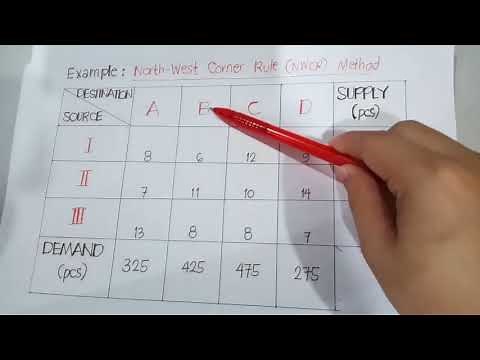 Example: North-West Corner Rule (NWCR) Method
DESTINATION
SOURCE
A B C D SUPPLY (pcs)
I 8 6 12 9
II 7 11 10 14
III 13 8 8 7
DEMAND (pcs) 325 425 475 275